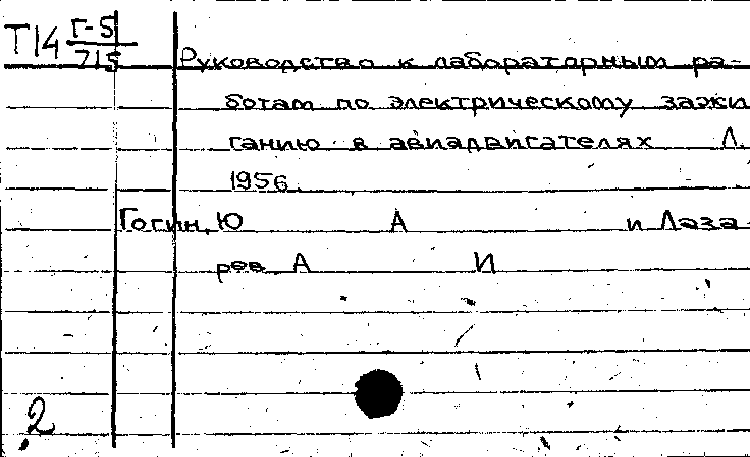 Т14 Г-5
715
Руководство к лабораторным ра-
ботам по электрическому зажи
ганию в авиадвигателях Л.
1956.
Гогин, Ю А и Лаза-
рев А И
2